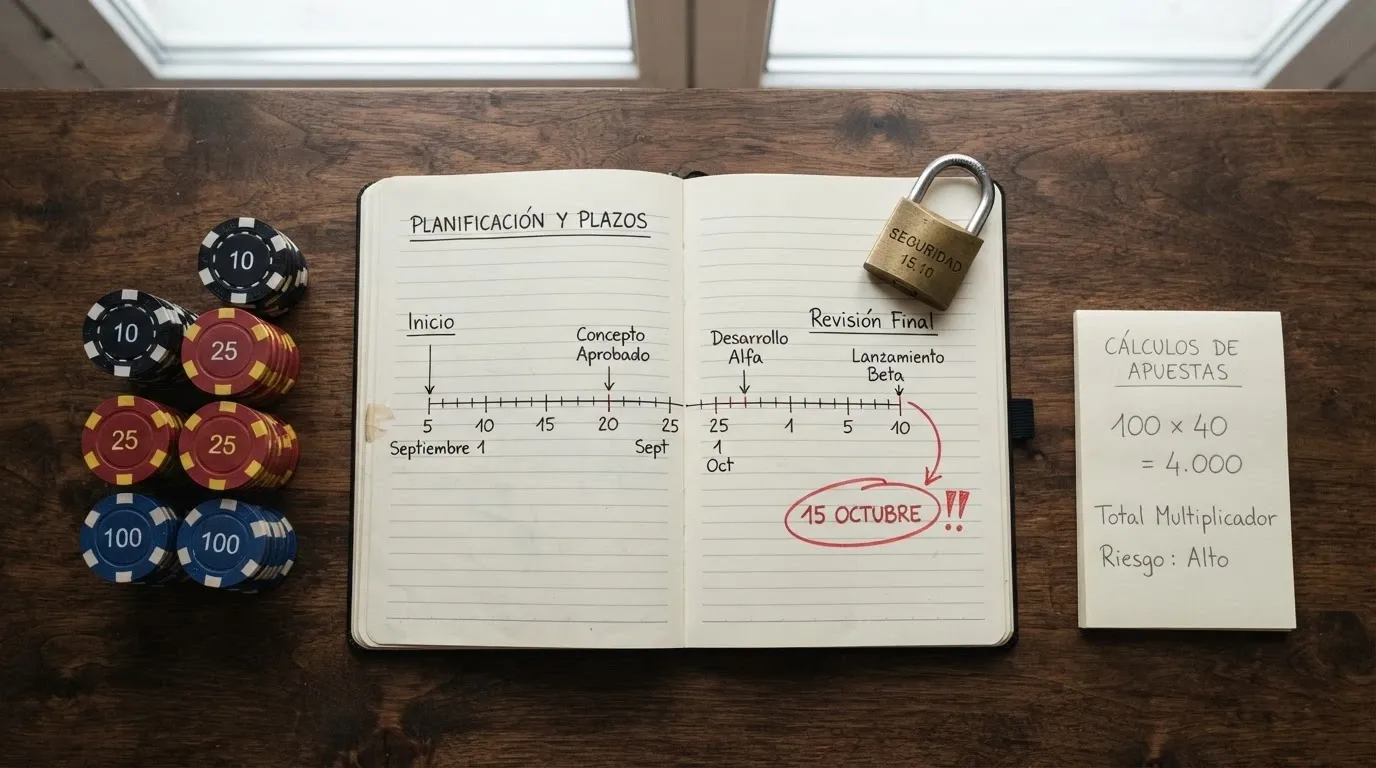 10
10
25
25
25
100
100
PLANIFICACIÓN Y PLAZOS
Inicio
Concepto
Aprobado
5
10
15
20
25
Septiembre 1
Sept
SEGURIDAD
15.10
Revisión Final
Desarrollo
Alfa
Lanzamiento
Beta
25
1
5
10
1
Oct
15 OCTUBRE !!
CÁLCULOS DE
APUESTAS
100 × 40
= 4.000
Total Multiplicador
Riesgo: Alto